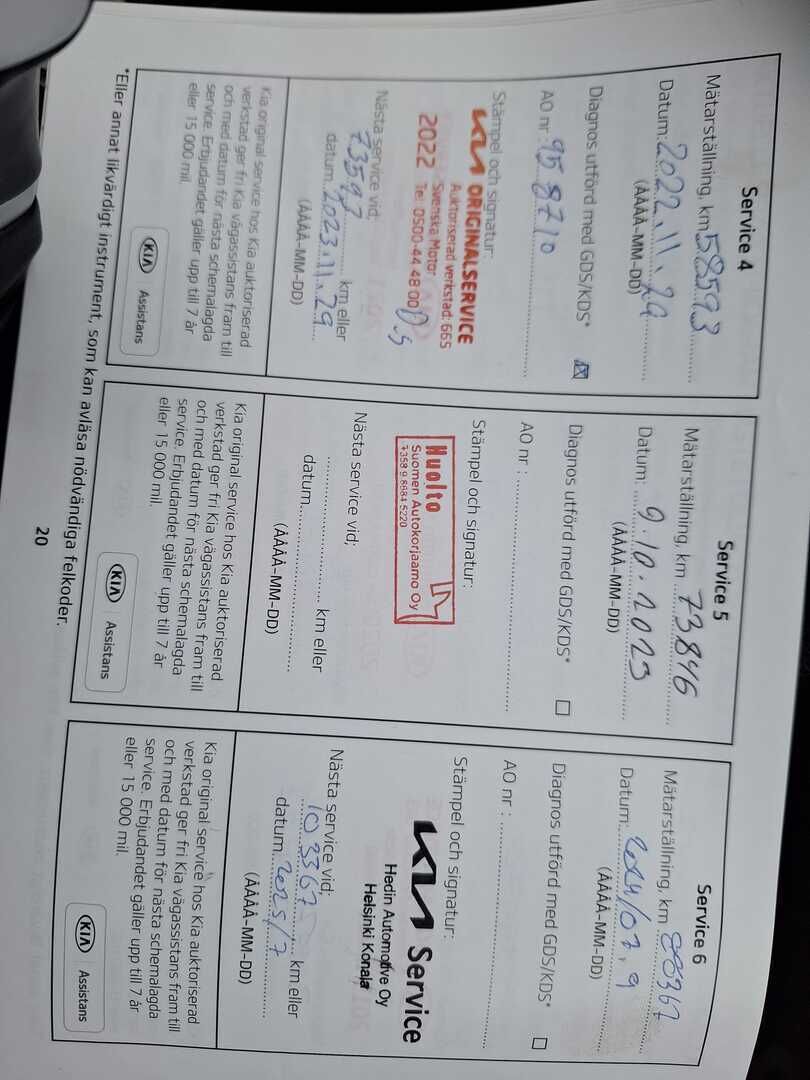 Service 4
Mätarställning, km 58593
Datum: 2022.11.29
(ÅÅÅÅ-MM-DD)
Diagnos utförd med GDS/KDS* ☒
AO nr : 958710
Stämpel och signatur:
KIA ORIGINALSERVICE
Auktoriserad verkstad: 665
Svenska Motor
2022 Tel: 0500-44 48 00
Nästa service vid;
73593 km eller
datum 2023.11.29
(ÅÅÅÅ-MM-DD)
Kia original service hos Kia auktoriserad
verkstad ger fri Kia vägassistans fram till
och med datum för nästa schemalagda
service. Erbjudandet gäller upp till 7 år
eller 15 000 mil.
KIA Assistans
Service 5
Mätarställning, km 73846
Datum: 9.10.2023
(ÅÅÅÅ-MM-DD)
Diagnos utförd med GDS/KDS* ☐
AO nr :
Stämpel och signatur:
Huolto
Suomen Autokorjaamo Oy
+358 9 8684 5220
Nästa service vid;
km eller
datum
(ÅÅÅÅ-MM-DD)
Kia original service hos Kia auktoriserad
verkstad ger fri Kia vägassistans fram till
och med datum för nästa schemalagda
service. Erbjudandet gäller upp till 7 år
eller 15 000 mil.
KIA Assistans
Service 6
Mätarställning, km 88367
Datum: 2024/07.9
(ÅÅÅÅ-MM-DD)
Diagnos utförd med GDS/KDS* ☐
AO nr :
Stämpel och signatur:
KIA Service
Hedin Automotive Oy
Helsinki Konala
Nästa service vid;
103367 km eller
datum 2025/7
(ÅÅÅÅ-MM-DD)
Kia original service hos Kia auktoriserad
verkstad ger fri Kia vägassistans fram till
och med datum för nästa schemalagda
service. Erbjudandet gäller upp till 7 år
eller 15 000 mil.
KIA Assistans
*Eller annat likvärdigt instrument, som kan avläsa nödvändiga felkoder.
20